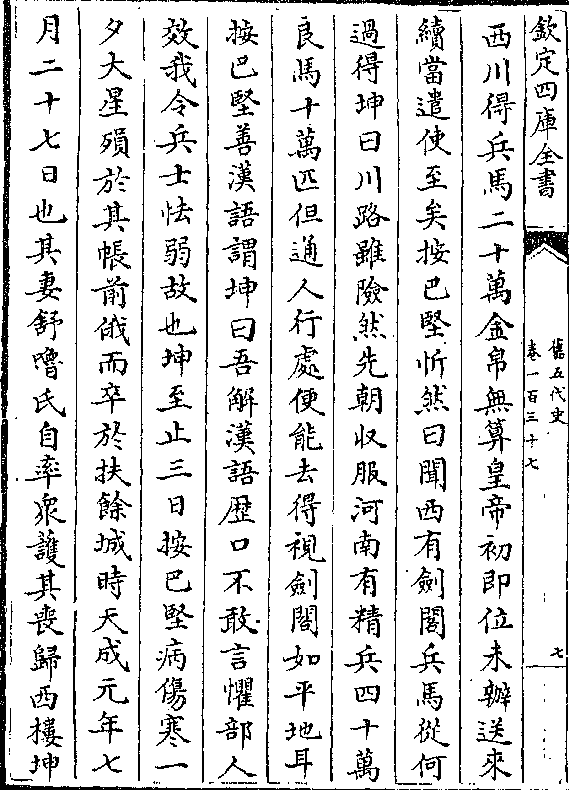 欽定四庫全書
舊五代史
卷一百三十七
七
西川得兵馬二十萬金帛無算皇帝初即位未辦送來
續當遣使至矣按巴堅忻然曰聞西有劍閣兵馬從何
過得坤曰川路雖險然先朝收服河南有精兵四十萬
良馬十萬匹但通人行處便能去得視劍閣如平地耳
按巴堅善漢語謂坤曰吾解漢語歴口不敢言懼部人
效我令兵士怯弱故也坤至止三日按巴堅病傷寒一
夕大星殞於其帳前俄而卒於扶餘城時天成元年七
月二十七日也其妻舒嚕氏自率衆護其喪歸西樓坤